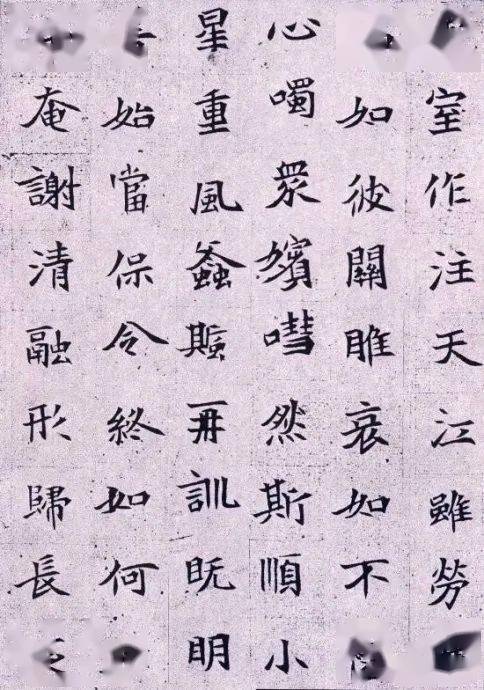 室作注天江雖勞
如彼關雎哀如不
心噣衆嬪嘒然斯順小
星重風螽蟴再訓既明
始當保令終如何
奄謝清融形歸長